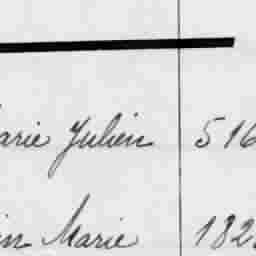 arie Julien 516
in Marie 182